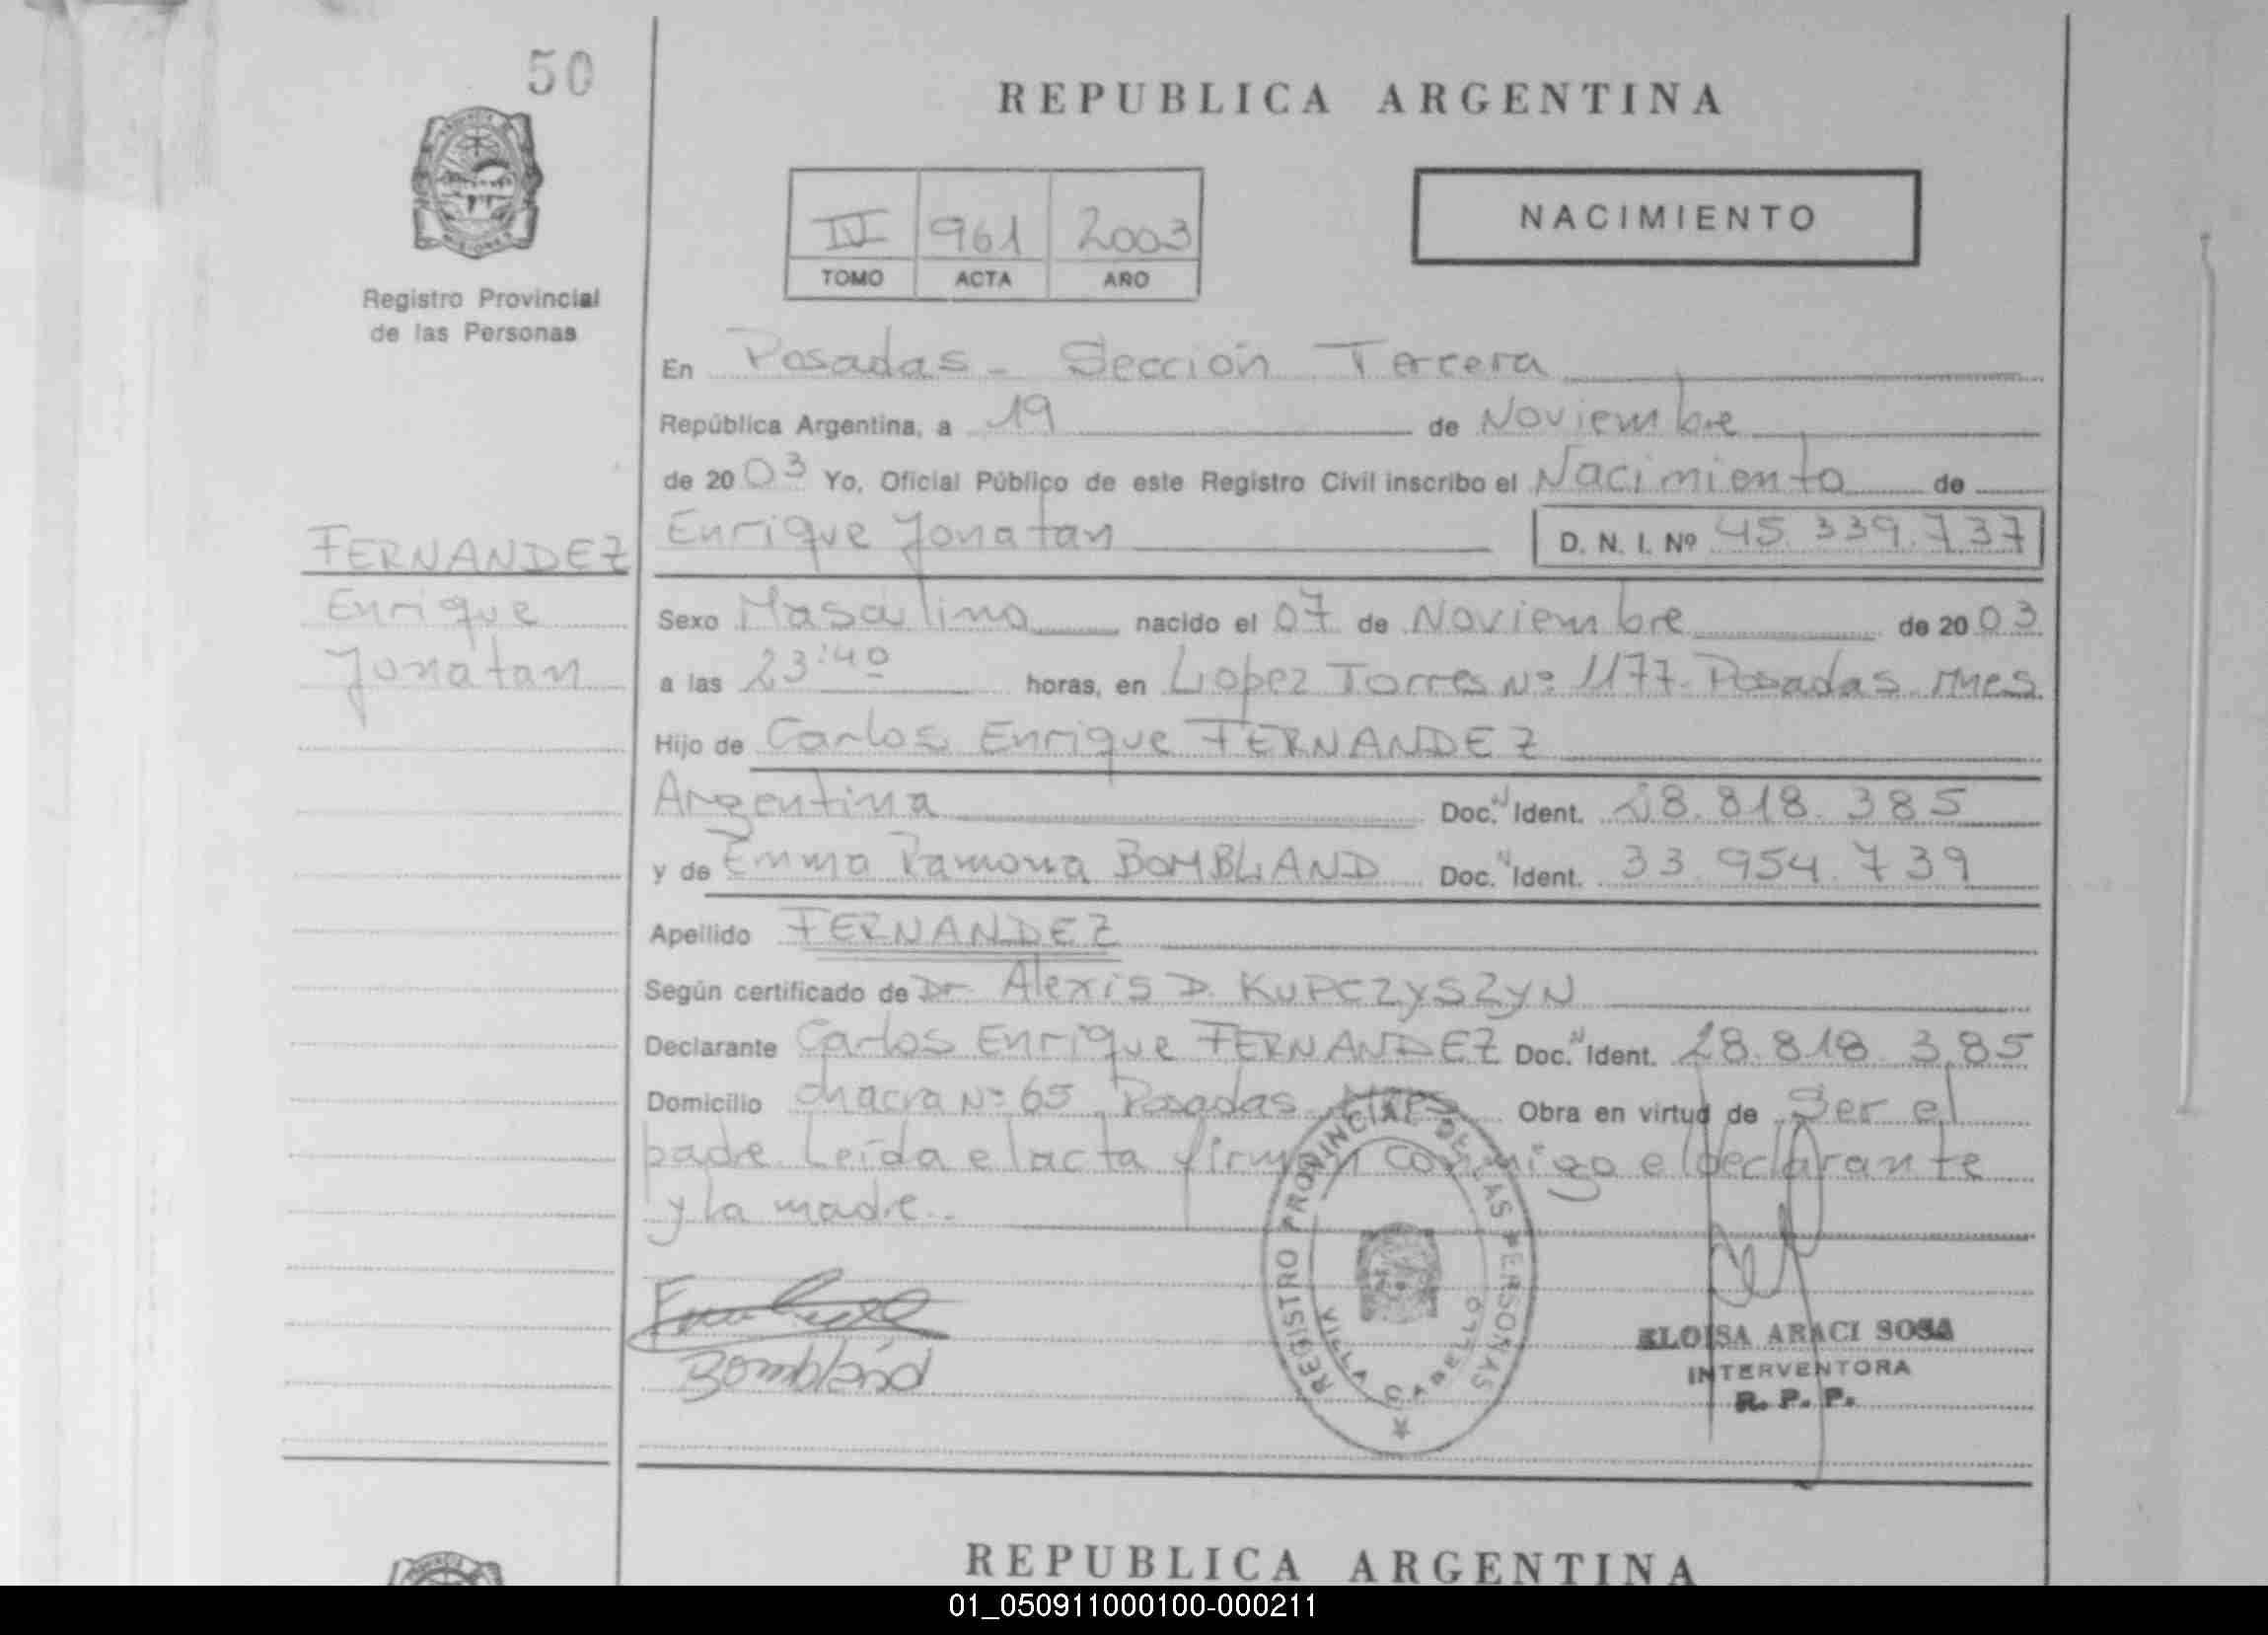 50
REPUBLICA ARGENTINA
IV 961 2003
TOMO ACTA AÑO
NACIMIENTO
Registro Provincial
de las Personas
En Posadas - Sección Tercera
República Argentina, a 19 de Noviembre
de 2003 Yo, Oficial Público de este Registro Civil inscribo el Nacimiento de
Enrique Jonatan D. N. I. Nº 45.339.737
FERNANDEZ
Enrique
Jonatan
Sexo Masculino nacido el 07 de Noviembre de 2003
a las 23:40 horas, en Lopez Torres Nº 1177 Posadas Mnes
Hijo de Carlos Enrique FERNANDEZ
Argentina Doc. N Ident. 28.818.385
y de Emma Ramona BOMBLAND Doc. N Ident. 33.954.739
Apellido FERNANDEZ
Según certificado de Dr Alexis D. KUPCZYSZYN
Declarante Carlos Enrique FERNANDEZ Doc. N Ident. 28.818.385
Domicilio chacra Nº 65 Posadas Mnes Obra en virtud de Ser el
padre Leída el acta firman conmigo el declarante
y la madre.
Bombland
REGISTRO PROVINCIAL DE LAS PERSONAS
VILLA CABELLO
ELOISA ARACI SOSA
INTERVENTORA
R. P. P.
REPUBLICA ARGENTINA
01_050911000100-000211